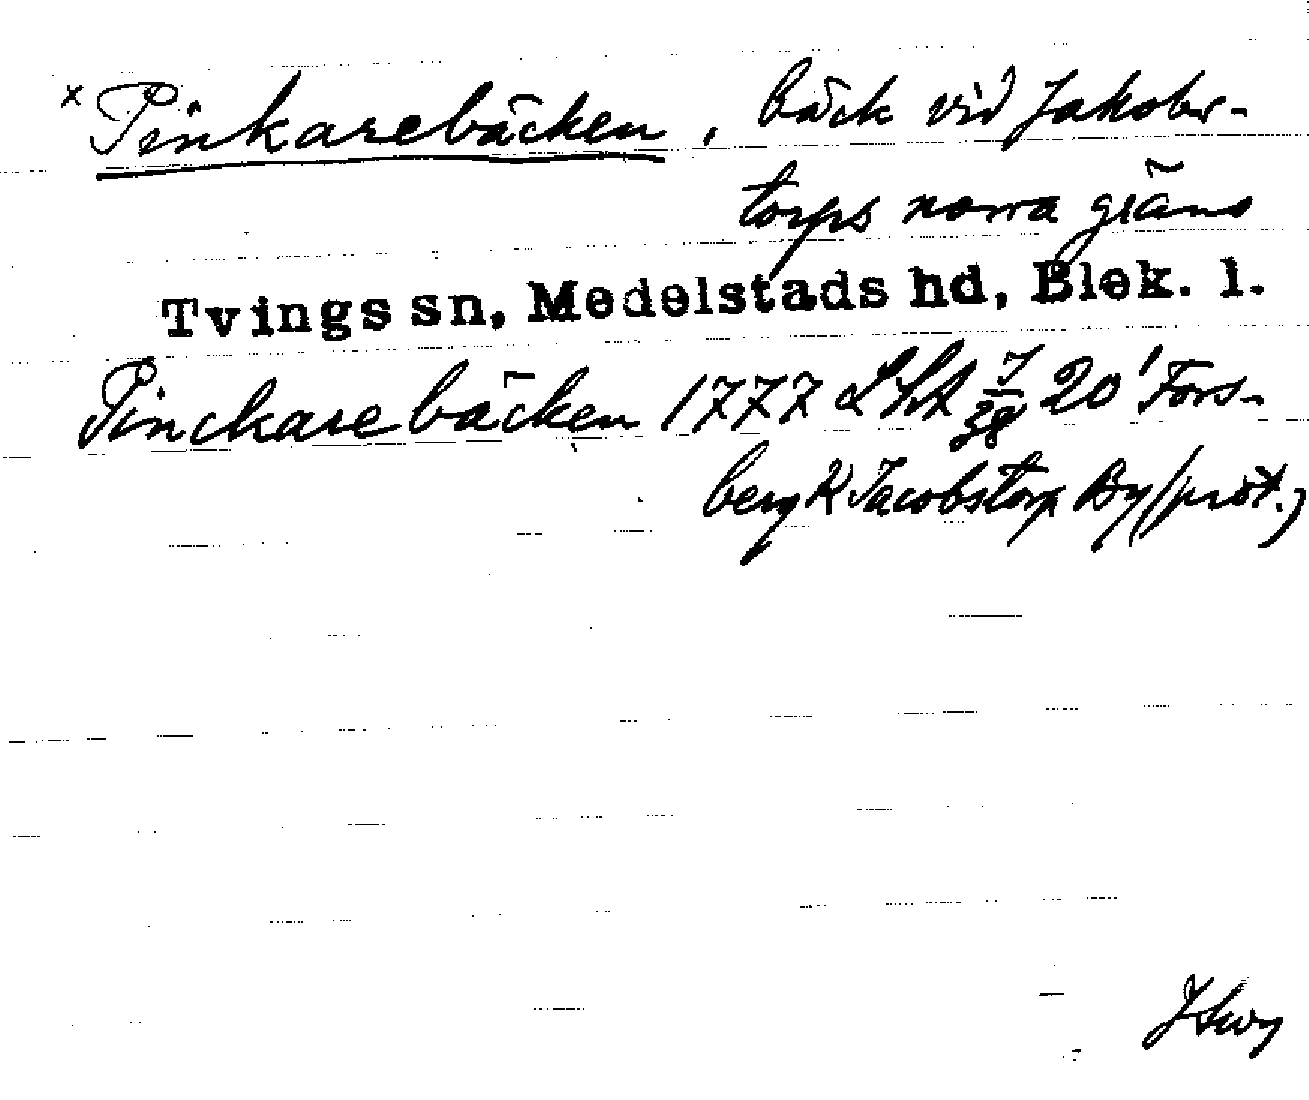 x Pinkarebäcken, bäck vid Jakobs-
torps norra gräns
Tvings sn, Medelstads hd, Blek. l.
Pinckarebäcken 1777 LSA 20 Fors-
berg K Jacobstorp By (prot.)